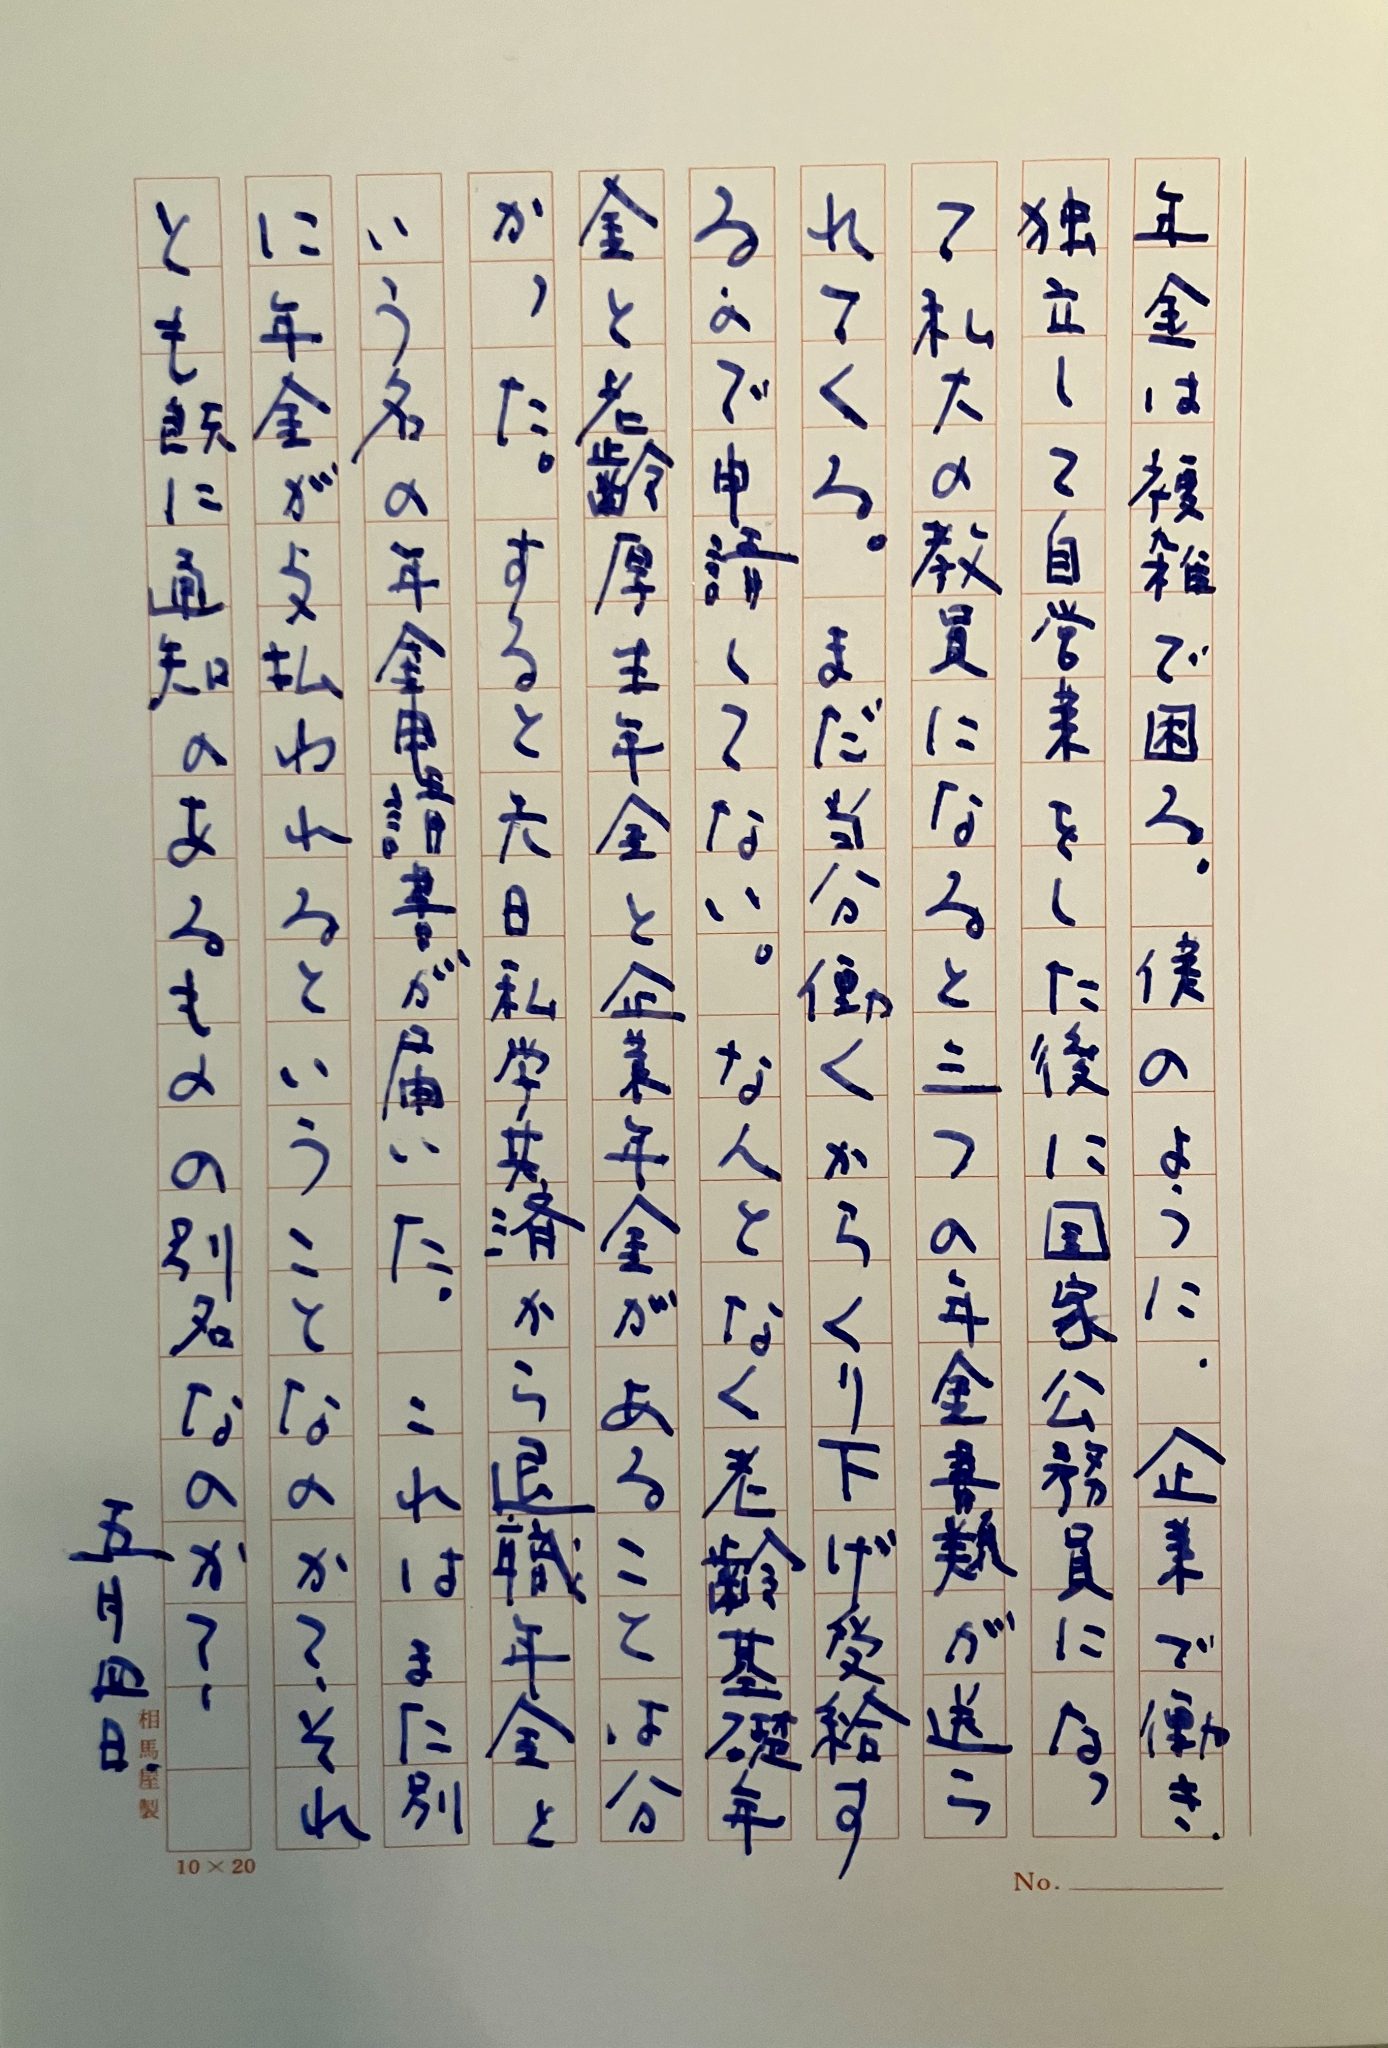 年金は複雑で困る。僕のように、企業で働き、
独立して自営業をした後に国家公務員になっ
て私大の教員になると三つの年金書類が送ら
れてくる。まだ当分働くからくり下げ受給す
るので申請してない。なんとなく老齢基礎年
金と老齢厚生年金と企業年金があることは分
かった。すると六日私学共済から退職年金と
いう名の年金申請書が届いた。これはまた別
に年金が支払われるということなのか？それ
とも既に通知のあるものの別名なのか？
五月四日
相馬屋製
10×20
No.